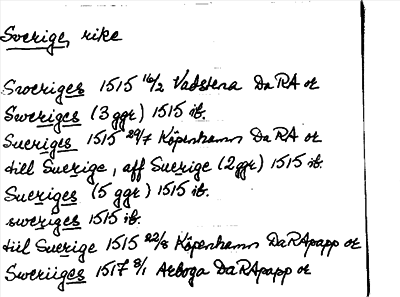 Sverige, rike
Swerigес 1515 16/2 Vadstena DaRA or
Sweriges (3 ggr) 1515 ib.
Sueriges 1515 29/7 Köpenhamn DaRA or
till Suerige, aff Suerige (2ggr) 1515 ib.
Sueriges (5 ggr) 1515 ib.
sweriges 1515 ib.
till Suerige 1515 22/8 Köpenhamn DaRApapp or
Sweriiges 1517 8/1 Arboga DaRApapp or